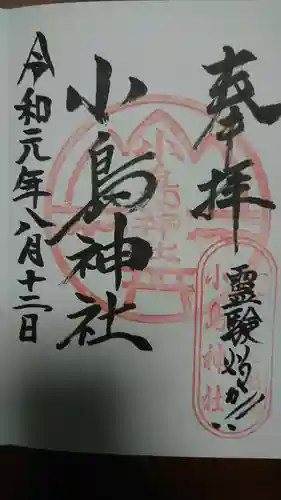 奉拝
小島神社
令和元年八月十二日
小島神社
小島神社